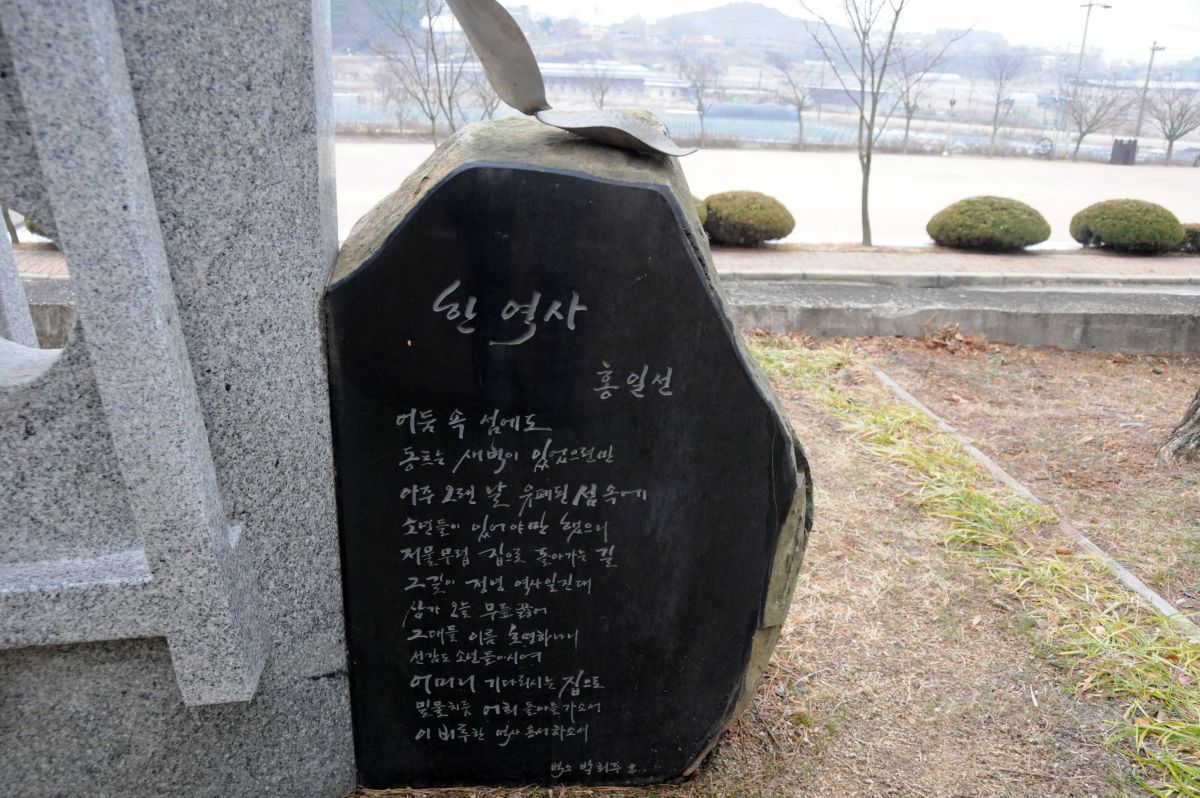 한 역사
홍일선
어둠 속 섬에도
동트는 새벽이 있었으련만
아주 오랜 날 유폐된 섬 속에
소년들이 있어야만 했으니
저물무렵 집으로 돌아가는 길
그 길이 정녕 역사일진대
삼가 오늘 무릎꿇어
그대들 이름 호명하나니
선감도 소년들이시여
어머니 기다리시는 집으로
밀물치듯 어희 돌아들 가소서
이 비루한 역사 용서하소서
박희주